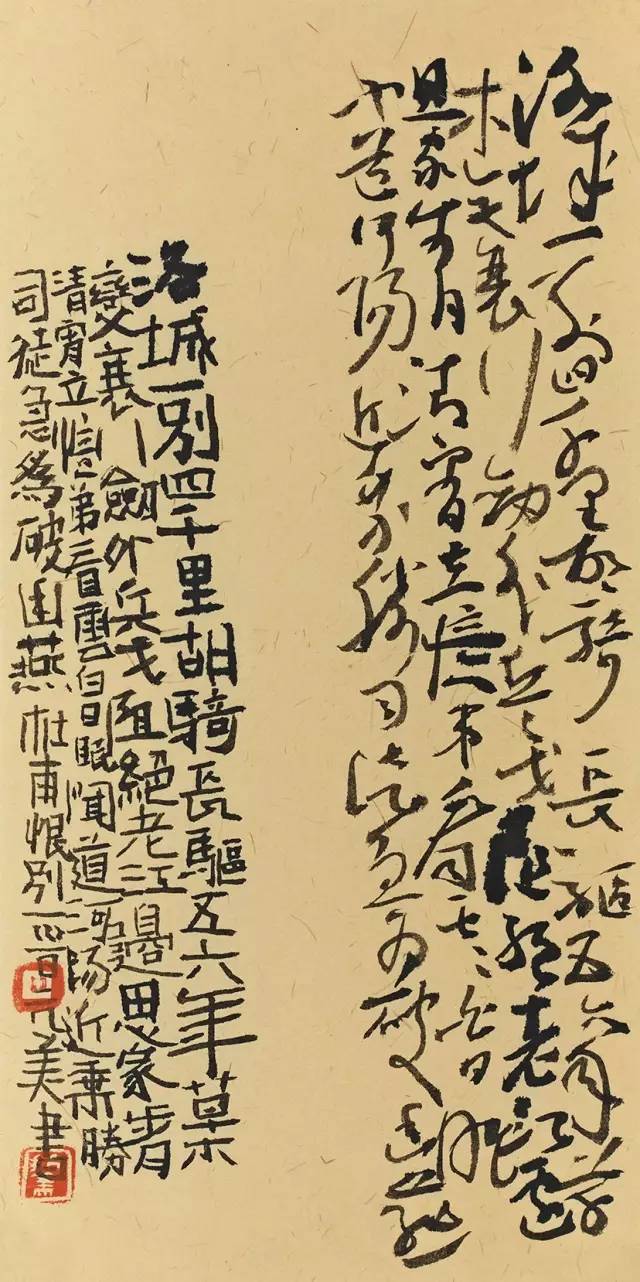 洛城一别四千里胡騎長驅五六年草
木變衰行劍外兵戈阻絕老江邊
思家步月清宵立憶弟看雲白日眠
聞道河陽近乘勝司徒急為破幽燕
洛城一别四千里胡騎長驅五六年草木
變衰行劍外兵戈阻絕老江邊思家步月
清宵立憶弟看雲白日眠聞道河陽近乘勝
司徒急為破幽燕杜甫恨别一首美書